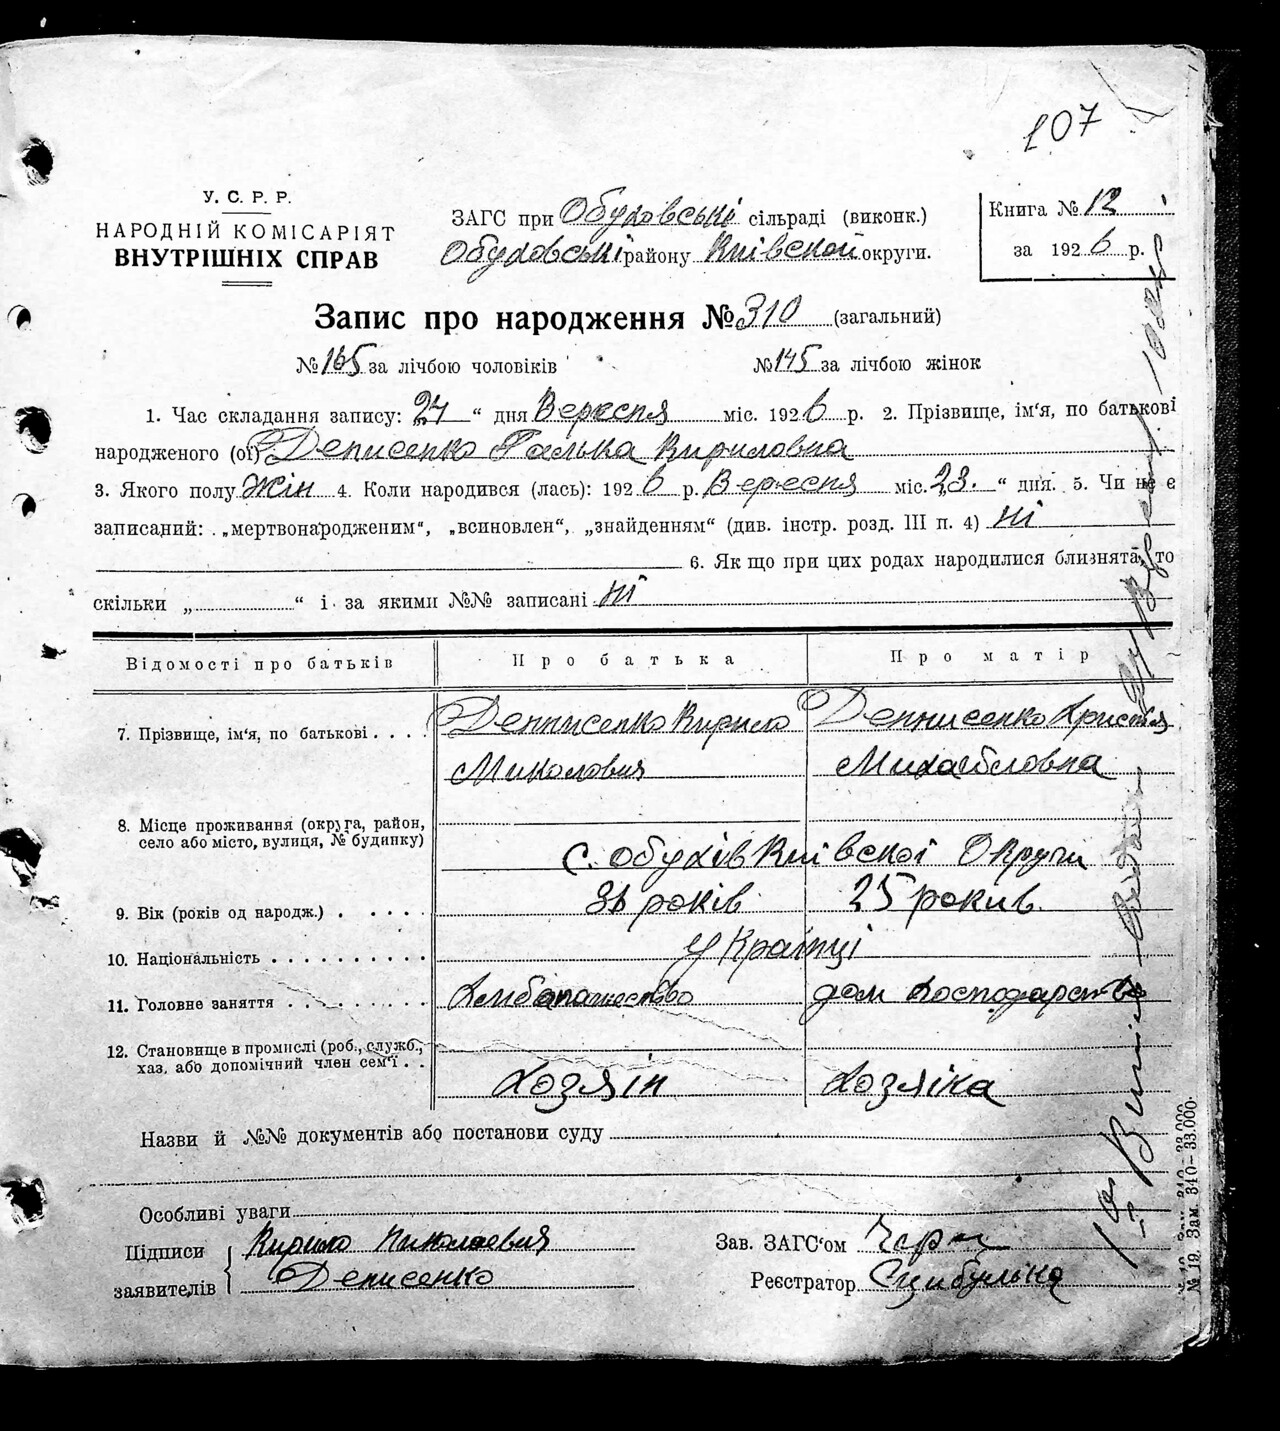 107
У. С. Р. Р.
НАРОДНІЙ КОМІСАРІЯТ
ВНУТРІШНІХ СПРАВ
ЗАГС при Обуховські сільраді (виконк.)
Обуховські району Київской округи.
Книга № 12
за 1926 р.
Запис про народження № 310 (загальний)
№ 165 за лічбою чоловіків № 145 за лічбою жінок
1. Час складання запису: 24 “ дня Вересня міс. 1926 р. 2. Прізвище, ім‘я, по батькові
народженого (ої) Денисенко Галька Кириловна
3. Якого полу Жін 4. Коли народився (лась): 1926 р. Вересня міс. 23. “ дня. 5. Чи не є
записаний: „мертвонародженим“, „всиновлен“, „знайденням“ (див. інстр. розд. III п. 4) ні
6. Як що при цих родах народилися близнята, то
скільки „ “ і за якими №№ записані ні
Відомості про батьків Про батька Про матір
7. Прізвище, ім‘я, по батькові . . . . Деннисенко Кирило Деннисенко Христя
Миколовия Михайловна
8. Місце проживання (округа, район,
село або місто, вулиця, № будинку) с. Обухів Київскої Округи
9. Вік (років од народж.) . . . . . років 25 рокив.
10. Національність . . . . . . . . . . Українці
11. Головне заняття . . . . . . . . . дом господарство
12. Становище в промислі (роб., служб.,
хаз. або допомічний член сем‘ї . . Хозяін Хозяіка
Назви й №№ документів або постанови суду
Особливі уваги
Підписи
заявителів
Кирило Николаевия
Денисенко
Зав. ЗАГС‘ом
Реєстратор Сцибулька
№ 19. Зам. 340–33.000.